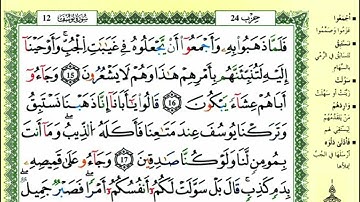 سُورَةُ يُوسُفَ 12
حزب 24
فَلَمَّا ذَهَبُواْ بِهِۦ وَأَجْمَعُوٓاْ أَنْ يَّجْعَلُوهُ فِے غَيَٰبَٰتِ اِ۬لْجُبِّۖ وَأَوْحَيْنَآ
إِلَيْهِ لَتُنَبِّئَنَّهُم بِأَمْرِهِمْ هَٰذَا وَهُمْ لَا يَشْعُرُونَۖ 15 وَجَآءُو
أَبَاهُمْ عِشَآءً يَبْكُونَۖ 16 قَالُواْ يَٰٓأَبَانَآ إِنَّا ذَهَبْنَا نَسْتَبِقُ
وَتَرَكْنَا يُوسُفَ عِندَ مَتَٰعِنَا فَأَكَلَهُ اُ۬لذِّيبُۖ وَمَآ أَنتَ
بِمُومِنٍ لَّنَا وَلَوْ كُنَّا صَٰدِقِينَۖ 17 وَجَآءُو عَلَىٰ قَمِيصِهِۦ
بِدَمٍ كَذِبٍۖ قَالَ بَلْ سَوَّلَتْ لَكُمُۥٓ أَنفُسُكُمُۥٓ أَمْراًۖ فَصَبْرٌ جَمِيلٌۖ
أَجْمَعُوا
عَزَمُوا وَصَمَّمُوا
نَسْتَبِقُ
بالسِّهام
سَوَّلَتْ
زيّنت أو سهّلت
وَارِدَهُمْ
مَن يتقدّمهم
فَأَدْلَى دَلْوَهُ
أرسلها في الجبّ
ليملأها